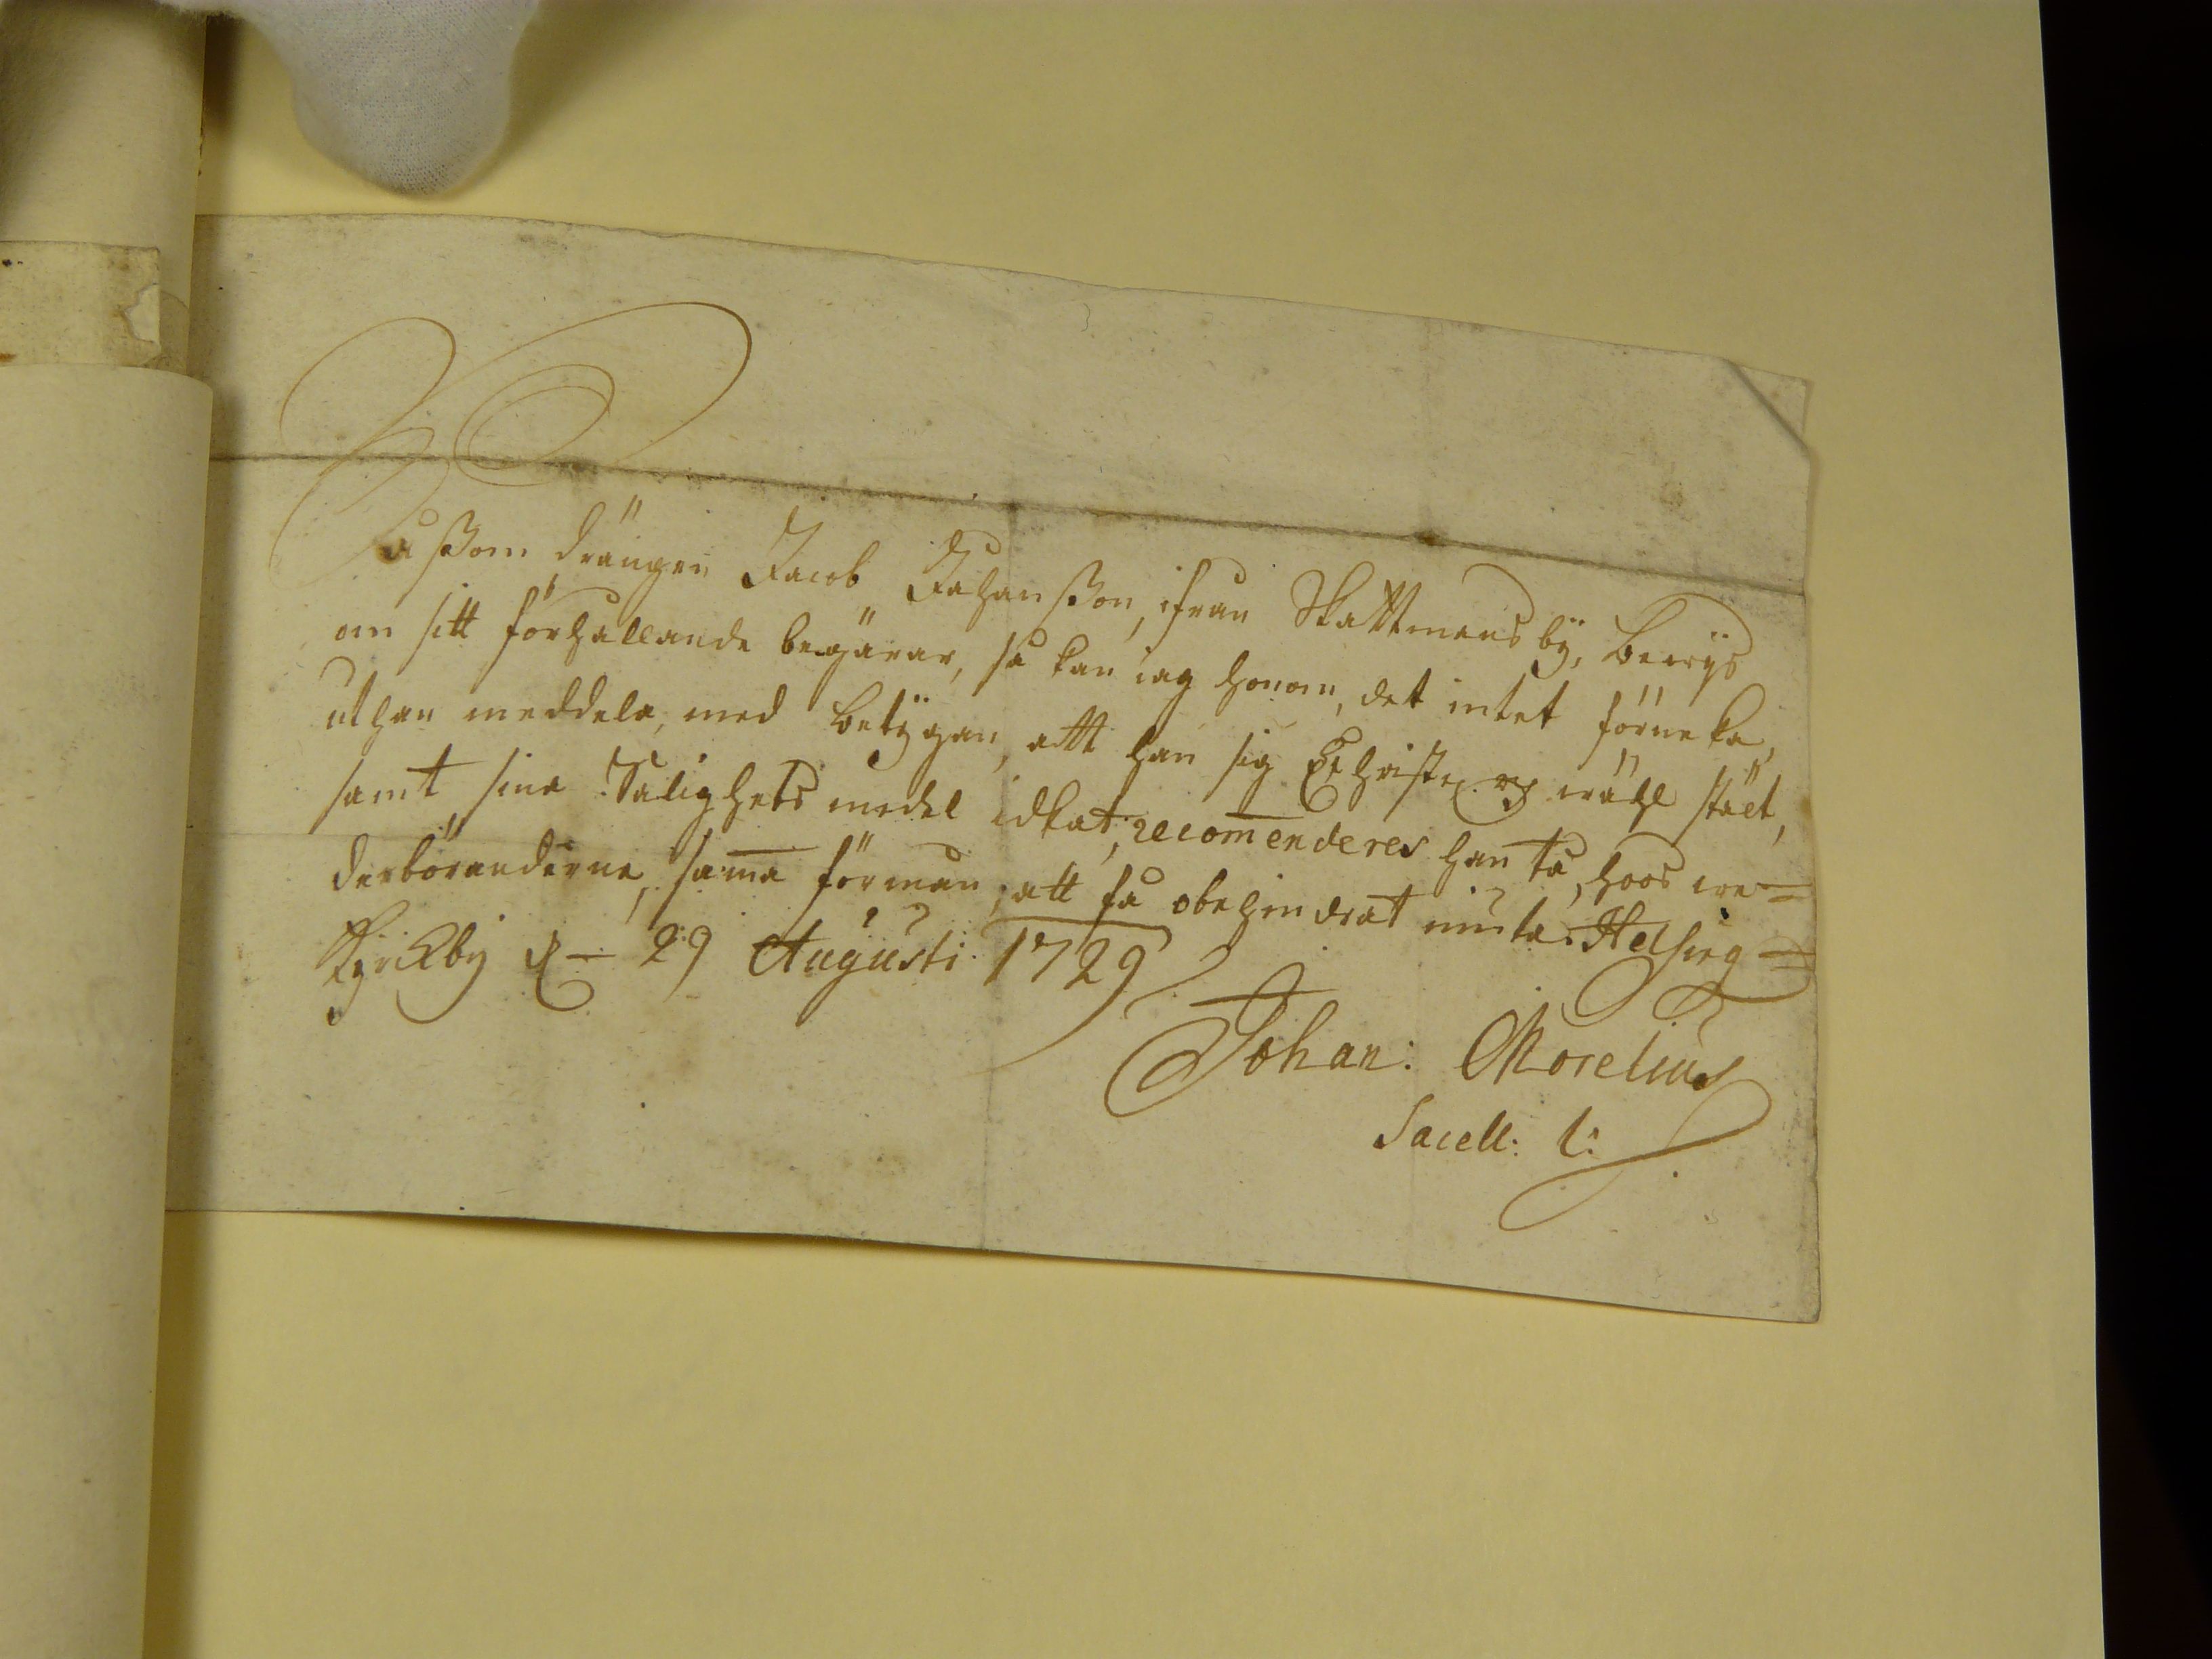 såssom drängen Jacob Johansson, ifrån Skattmansby, bewijs
om sitt förhållande begärar, så kan iag honom, det intet förneka,
uthan meddela, med betygan, att han sig Christel. og wähl stält,
samt sina Salighets medel idkat, recomenderes han tå, hoos we=
derböranderne, samma förmån, att få obehindrat niuta. Helsing=
Kyrckby d— 29 Augusti 1729
Johan: Morelius
Sacell: l: